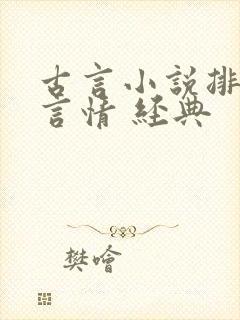 古言小說排
言情 經典
樊噲